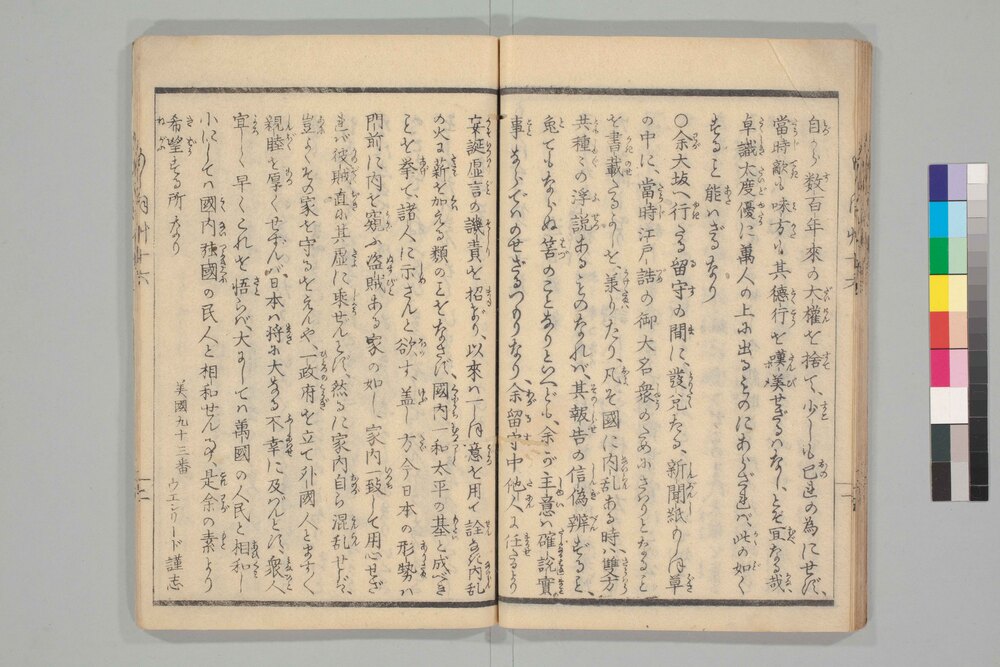 自から数百年來の大權を捨て、少しも己れの為にせず、
當時敵も味方も其德行を嘆美せざるハなし、とも宜なる哉
卓識大度優に萬人の上に出るものにあらざれバ、此の如く
すること能ハざるなり
〇余大坂へ行たる留守の間に、發兌なる、新聞紙もしほ草
の中に、當時江戸詰の御大名衆のあにさりとなること
を書載たるよしを承りたり、凡そ國に内乱ある時ハ、雙方
共種々の浮説あるものなれバ、其報告の信偽辨ぜずること、
兎てもならぬ筈のことなりといへども、余が主意ハ確說實
事ならでハのせざるつもりなり、余留守中他人に任たるより
妄誕虚言の譏責を招おり、以來ハ一しほ意を用て詮なき内乱
の火に薪を加える類のことをなさず、國内一和太平の基と成べき
ことを拳て、諸人に示さんと欲す、盖し方今日本の形勢ハ
門前に内を窺ふ盗賊ある家の如し、家内一致して用心せざ
れバ彼賊直に其虚に乘せんとす、然るに家内自ら混乱せバ、
豈よくその家を守るをえんや、一政府を立て外國人とますく
親睦を厚くせずんバ、日本ハ将に大なる不幸に及バんとす、衆人
宜しく早くこれを悟らバ、大にしてハ萬國の人民と相和し
小にしてハ國内殊國の民人と相和せん事、是余の素より
希望する所なり
美國九十三番ウエンリード謹志